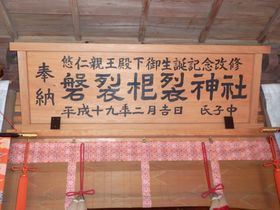 悠仁親王殿下御生誕記念改修
奉納
磐裂根裂神社
平成十九年二月吉日 氏子中